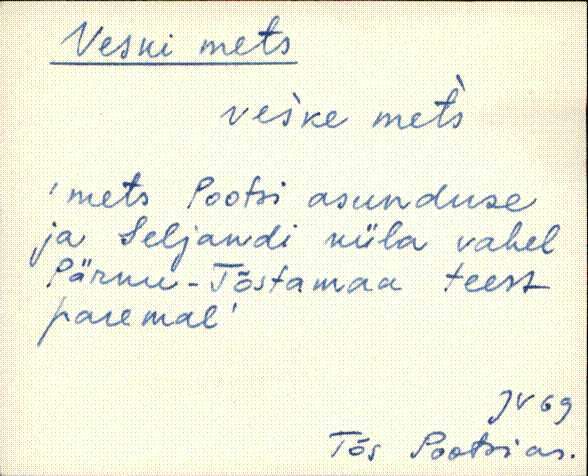 Veski mets
veške metš
'mets Pootsi asunduse
ja Seljandi küla vahel
Pärnu-Tõstamaa teest
paremal'
JV 69
Tõs Pootsi as.